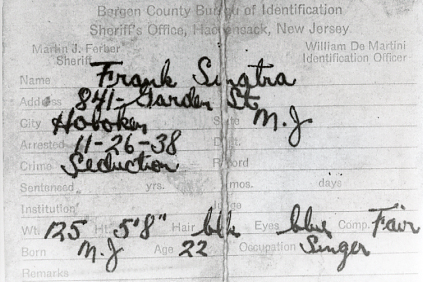 Bergen County Bureau of Identification
Sheriff's Office, Hackensack, New Jersey
Martin J. Ferber William De Martini
Sheriff Identification Officer
Name Frank Sinatra
Address 841- Garden St
City Hoboken State N.J
Arrested 11-26-38
Crime Seduction Record
Sentenced yrs. mos. days
Institution
Wt. 125 Ht. 5'8" Hair blk Eyes blue Comp. Fair
Born N.J Age 22 Occupation Singer
Remarks